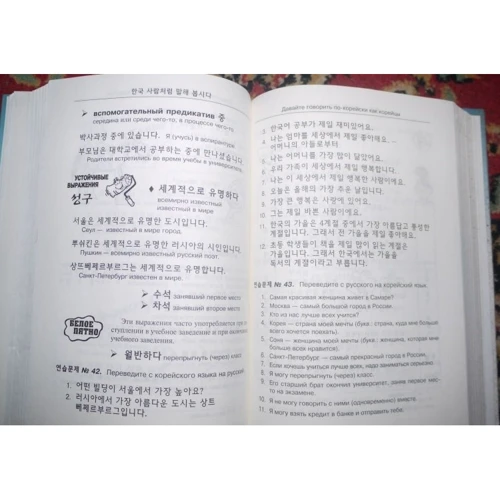 한국 사람처럼 말해 봅시다
вспомогательный предикатив 중
середина или среди чего-то, в процессе чего-то
박사과정 중에 있습니다. Я (учусь) в аспирантуре.
부모님은 대학교에서 공부하는 중에 만나셨습니다.
Родители встретились во время учебы в университете.
УСТОЙЧИВЫЕ
ВЫРАЖЕНИЯ
성구
세계적으로 유명하다
всемирно известный
известный в мире
서울은 세계적으로 유명한 도시입니다.
Сеул – известный в мире город.
뿌쉬킨은 세계적으로 유명한 러시아의 시인입니다.
Пушкин – всемирно известный русский поэт.
상뜨뻬쩨르부르그는 세계적으로 유명합니다.
Санкт-Петербург известен в мире.
수석 занявший первое место
차석 занявший второе место
БЕЛОЕ
ПЯТНО
Эти выражения часто употребляются при
ступлении в учебное заведение и при
учебного заведения.
월반하다 перепрыгнуть (через) класс
연습문제 № 42. Переведите с корейского языка на русский
1. 어떤 빌딩이 서울에서 가장 높아요?
2. 러시아에서 가장 아름다운 도시는 상트
뻬쩨르부르그입니다.
Давайте говорить по-корейски как корейцы
3. 한국어 공부가 제일 재미있어요.
4. 나는 엄마를 세상에서 제일 좋아해요.
어머니의 아들로부터
5. 나는 어머니를 가장 많이 닮았어요.
6. 우리 가족이 세상에서 제일
7. 나는 이 세상에서 제일 행복한 사람이에요.
오늘은 올해의 가장 추운 날입니다.
가장 큰 행복은 사랑에 있어요.
그는 제일 바쁜 사람이에요.
11. 한국의 가을은 4계절 중에서 가장 아름답고 풍성한
계절입니다. 그래서 전 가을을 제일 좋아해요.
12. 초등 학생들이 책을 제일 많이 읽는 계절은
가을입니다. 그래서 한국에서는 가을을
독서의 계절이라고 부릅니다.
연습문제 № 43. Переведите с русского на корейский язык.
1. Самая красивая женщина живет в Самаре?
2. Москва – самый большой город в России.
3. Кто из нас лучше всех учится?
4. Корея – страна моей мечты (букв.: страна, куда мне больше
всего хочется поехать).
5. Соня – женщина моей мечты (букв.: женщина, которая мне
больше всех нравится).
6. Санкт-Петербург – самый прекрасный город в России.
7. Если хочешь учиться лучше всех, надо стараться.
8. Я могу перепрыгнуть (через) класс.
9. Его старший брат окончил университет, заняв первое мес-
то на экзамене.
10. Я не могу говорить с ними (одновременно) вместе.
11. Я могу взять кредит в банке и отправить тебе.